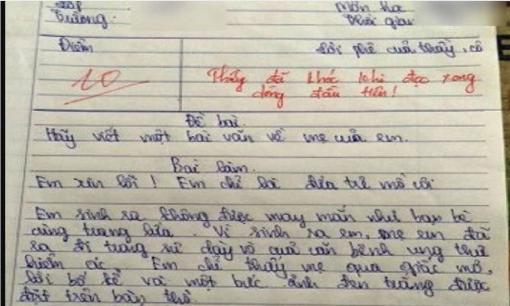 Lớp
Trường:
Môn học
Thời gian
Điểm
Lời phê của thầy, cô
10
Thầy đã khóc khi đọc xong
dòng đầu tiên!
Đề bài.
Hãy viết một bài văn về mẹ của em.
Bài làm.
Em xin lỗi! Em chỉ là đứa trẻ mồ côi
Em sinh ra không được may mắn như bạn bè
cùng trang lứa. Vì sinh ra em, mẹ em đã
ra đi trong sự dày vò của căn bệnh ung thư
hiểm ác. Em chỉ thấy mẹ qua giấc mơ,
lời bố kể và một bức ảnh đen trắng được
đặt trên bàn thờ.